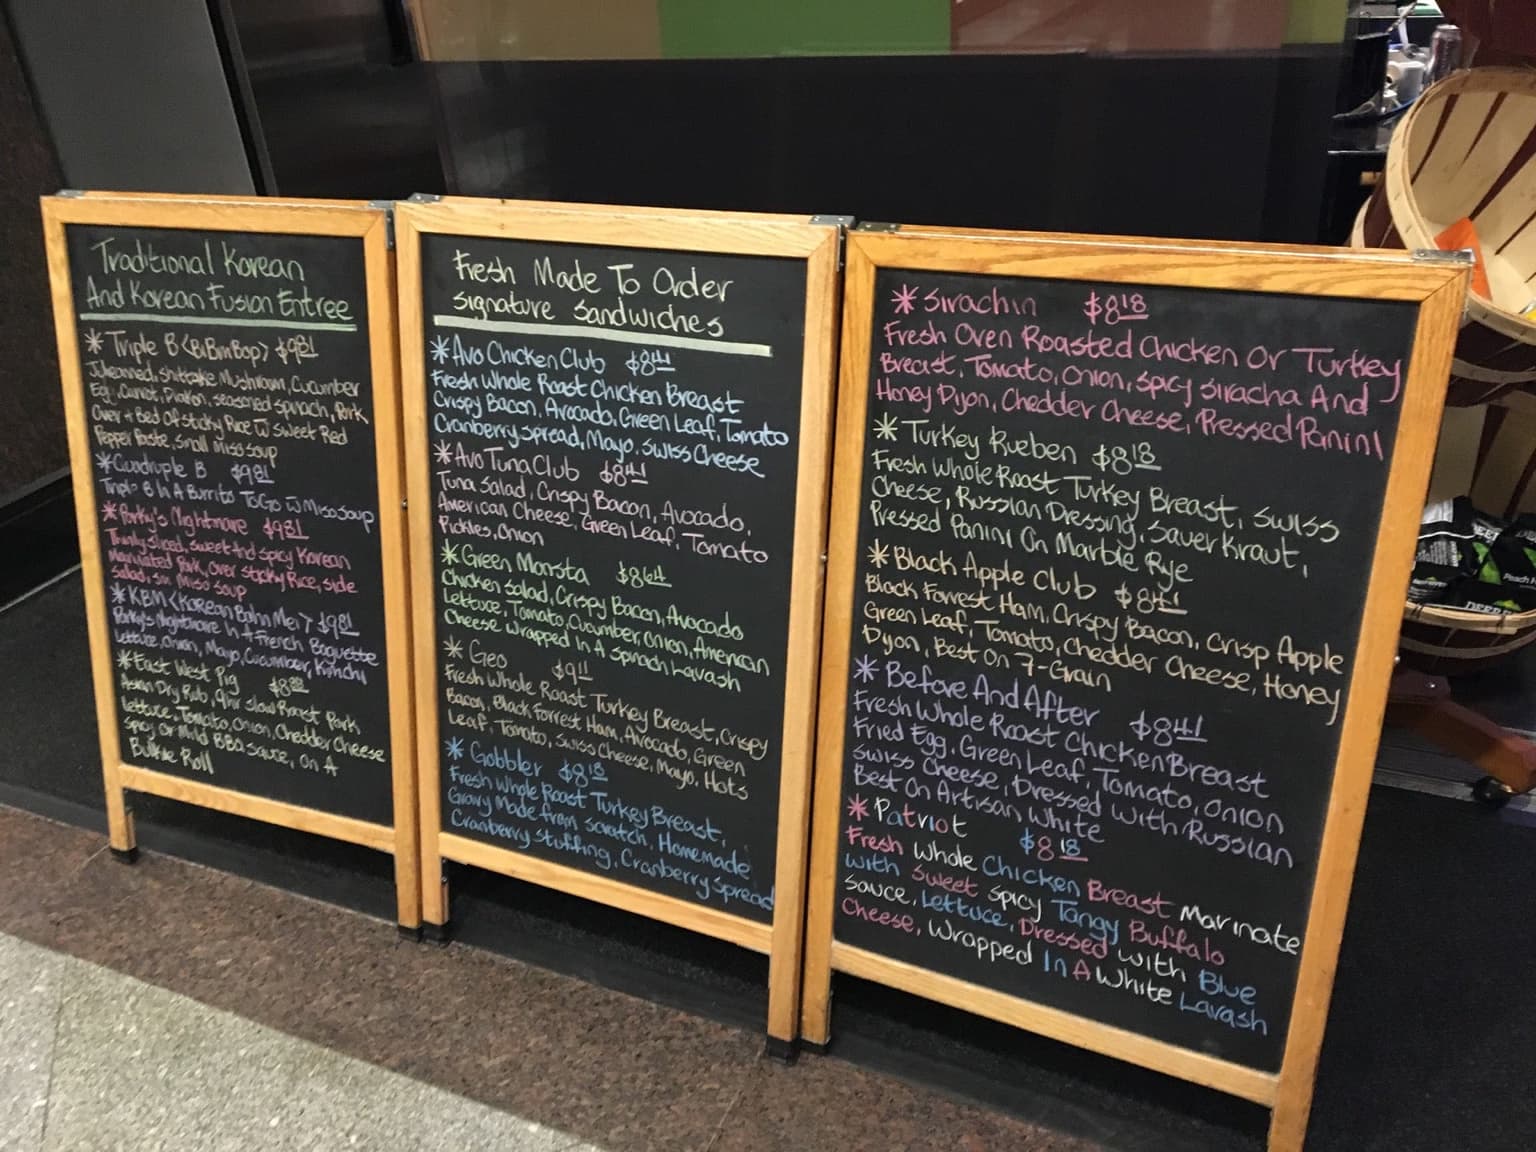 Traditional Korean
And Korean Fusion Entree
* Triple B <BiBimBop> $9.81
Julienned, shittake Mushroom, Cucumber
Egg, Carrot, seasoned spinach, Pork,
Over A Bed Of sticky Rice W sweet Red
Pepper Paste, small Miso soup
* Quadruple B $9.81
Triple B In A Burrito To Go W Miso soup
* Porky's Nightmare $9.81
Thinly sliced, sweet And spicy Korean
Marinated Pork, over sticky Rice, side
salad, sm Miso soup
* KBM <Korean Bahn Mei> $9.81
Porky's Nightmare In A French Baguette
Lettuce, Onion, Mayo, Cucumber, Kimchi
* East West Pig
Asian Dry Rub, 9hr slow Roast Pork
Lettuce, Tomato, Onion, Chedder Cheese
Spicy or Mild BBQ sauce, on A
Bulkie Roll
Fresh Made To Order
signature Sandwiches
* Avo Chicken Club $8.41
Fresh Whole Roast Chicken Breast
Crispy Bacon, Avocado, Green Leaf, Tomato
Cranberry spread, Mayo, Swiss Cheese
* Avo Tuna Club $8.41
Tuna Salad, Crispy Bacon, Avocado,
American Cheese, Green Leaf, Tomato
Pickles, Onion
* Green Monsta $8.64
Chicken Salad, Crispy Bacon, Avocado
Lettuce, Tomato, Cucumber, Onion, American
Cheese Wrapped In A Spinach Lavash
* Geo $9.11
Fresh Whole Roast Turkey Breast, Crispy
Bacon, Black Forrest Ham, Avocado, Green
Leaf, Tomato, Swiss Cheese, Mayo, Hots
* Gobbler $8.18
Fresh Whole Roast Turkey Breast,
Gravy Made from scratch, Homemade
Cranberry Stuffing, Cranberry Spread
* Sirachin $8.18
Fresh Oven Roasted Chicken Or Turkey
Breast, Tomato, Onion, spicy siracha And
Honey Dijon, Chedder Cheese, Pressed Panini
* Turkey Rueben $8.18
Fresh Whole Roast Turkey Breast, Swiss
Cheese, Russian Dressing, Sauerkraut,
Pressed Panini On Marble Rye
* Black Apple Club $8.41
Black Forrest Ham, Crispy Bacon, Crisp Apple
Green Leaf, Tomato, Chedder Cheese, Honey
Dijon, Best On 7-Grain
* Before And After $8.41
Fresh Whole Roast Chicken Breast
Fried Egg, Green Leaf, Tomato, Onion
Swiss Cheese, Dressed With Russian
Best On Artisan White
* Patriot $8.18
Fresh Whole Chicken Breast Marinate
With Sweet Spicy Tangy Buffalo
Sauce, Lettuce, Dressed With Blue
Cheese, Wrapped In A White Lavash